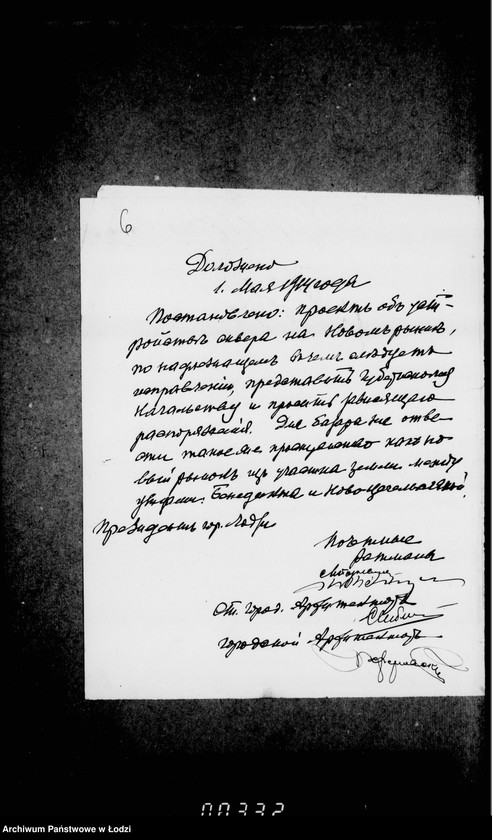 6
Доложено
1. Мая 1914 года
Постановлено: проектъ объ уст-
ройствѣ сквера на Новомъ рынкѣ,
по надлежащемъ въ чемъ слѣдуетъ
исправленіи, представить Губернскому
Начальству и просить зависящаго
распоряженія. Для базара же отве-
сти такое же пространство какъ но-
вый рынокъ изъ участка земли между
улицами: Бенедикта и Ново-Цегельняной.
Президентъ гор. Лодзи
Почетные
Ратманы
Ст. город. Архитекторъ
Городской Архитекторъ
00332
Archiwum Państwowe w Łodzi